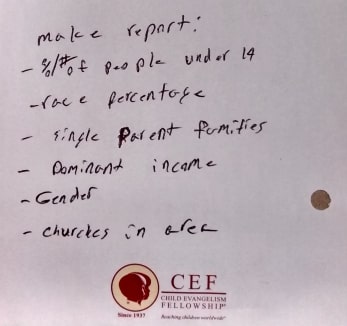 make report:
- %/# of people under 14
- race percentage
- single parent families
- Dominant income
- Gender
- churches in area
CEF
CHILD EVANGELISM
FELLOWSHIP®
Since 1937
Reaching children worldwide®